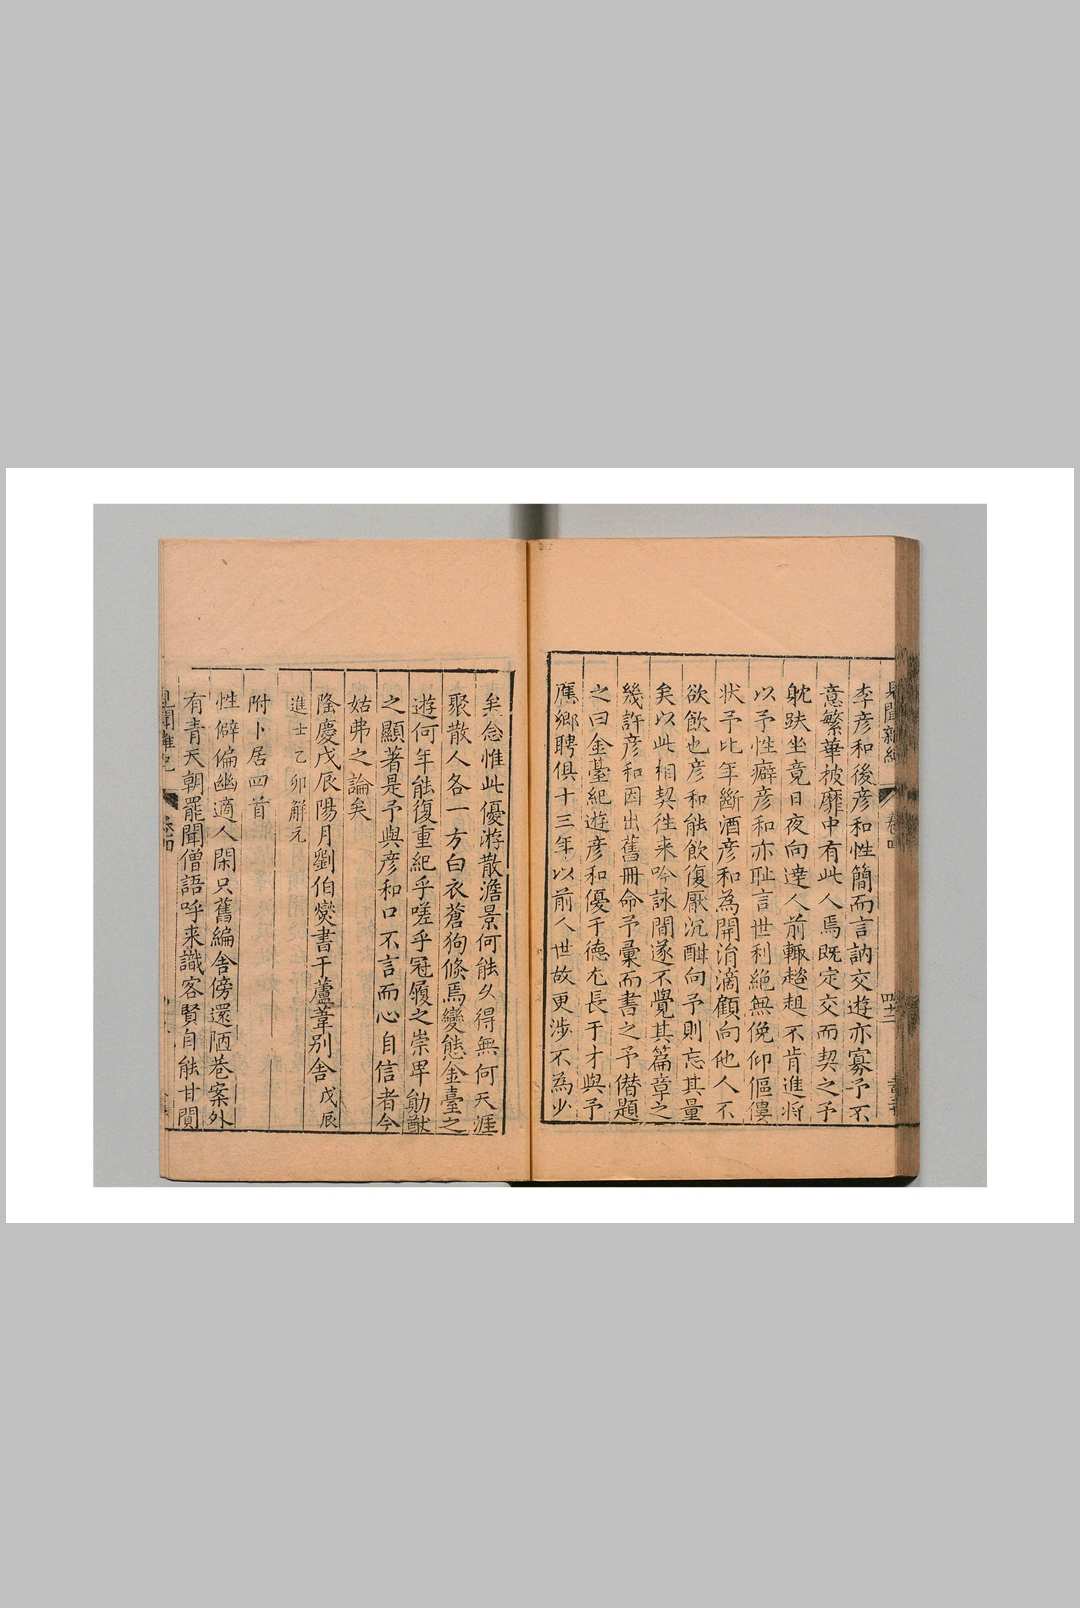 見聞雜紀 卷四 四十二
李彦和後彦和性簡而言訥交遊亦寡予不
意繁華披靡中有此人焉既定交而契之予
躭趺坐竟日夜向達人前輙趑趄不肯進將
以予性癖彦和亦耻言世利絶無俛仰傴僂
状予比年斷酒彦和為開涓滴顧向他人不
欲飲也彦和能飲復厭沉酣向予則忘其量
矣以此相契徃来吟詠間遂不覺其篇章之
幾許彦和因出舊冊命予彙而書之予僭題
之曰金䑓紀遊彦和優于德尤長于才與予
鴈鄉聘俱十三年以前人世故更渉不為少
矣念惟此優游散澹景何能乆得無何天涯
聚散人各一方白衣蒼狗倐焉變態金臺之
遊何年能復重紀乎嗟乎冠履之崇畀勛猷
之顯著是予與彦和口不言而心自信者今
姑弗之論矣
隆慶戊辰陽月劉伯爕書于蘆葦别舍 戊辰
進士乙卯解元
附卜居四首
性僻偏幽適人閑只舊編舍傍還陋巷案外
有青天朝罷聞僧語呼来識客賢自能甘闃
見聞雜紀 卷四